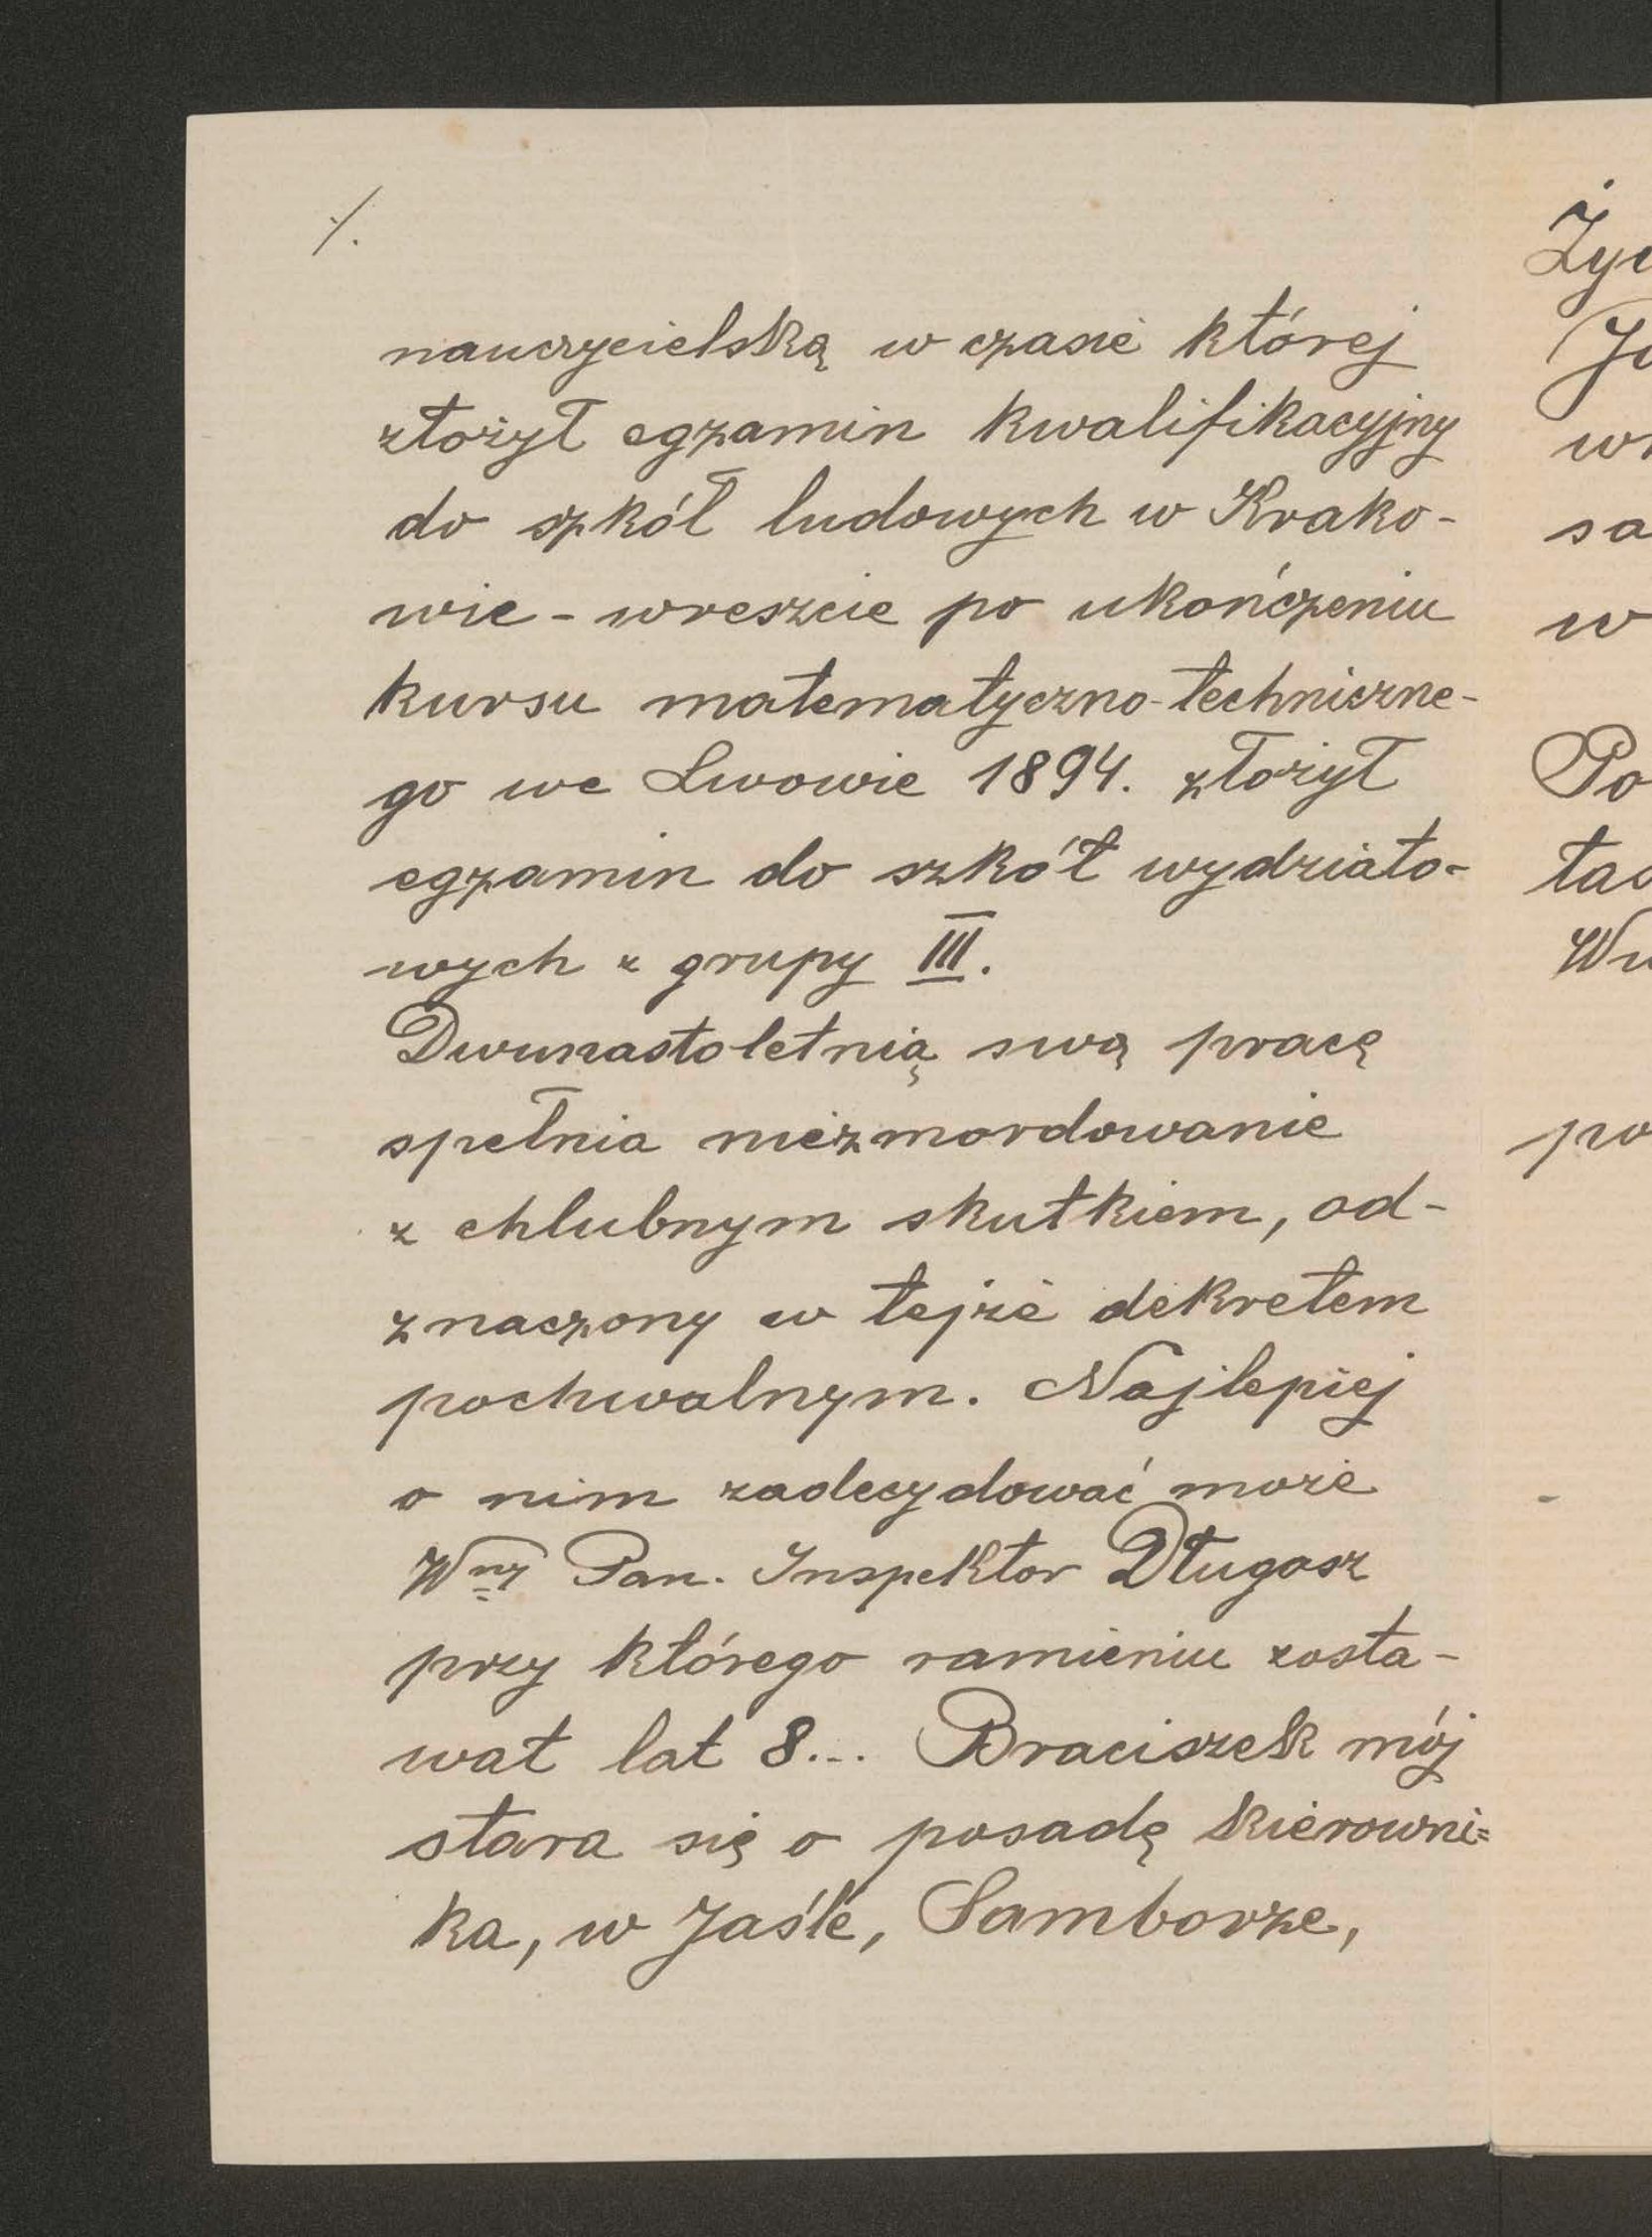 ./.
nauczycielską w czasie której
złożył egzamin kwalifikacyjny
do szkół ludowych w Krako-
wie - wreszcie po ukończeniu
kursu matematyczno-techniczne-
go we Lwowie 1894. złożył
egzamin do szkół wydziało-
wych z grupy III.
Dwunastoletnią swą pracę
spełnia niezmordowanie
z chlubnym skutkiem, od-
znaczony w tejże dekretem
pochwalnym. Najlepiej
o nim zadecydować może
Wny Pan. Inspektor Długosz
przy którego ramieniu zosta-
wał lat 8... Braciszek mój
stara się o posadę kierowni=
ka, w Jaśle, Samborze,
Ży
w
sa
w
Po
po